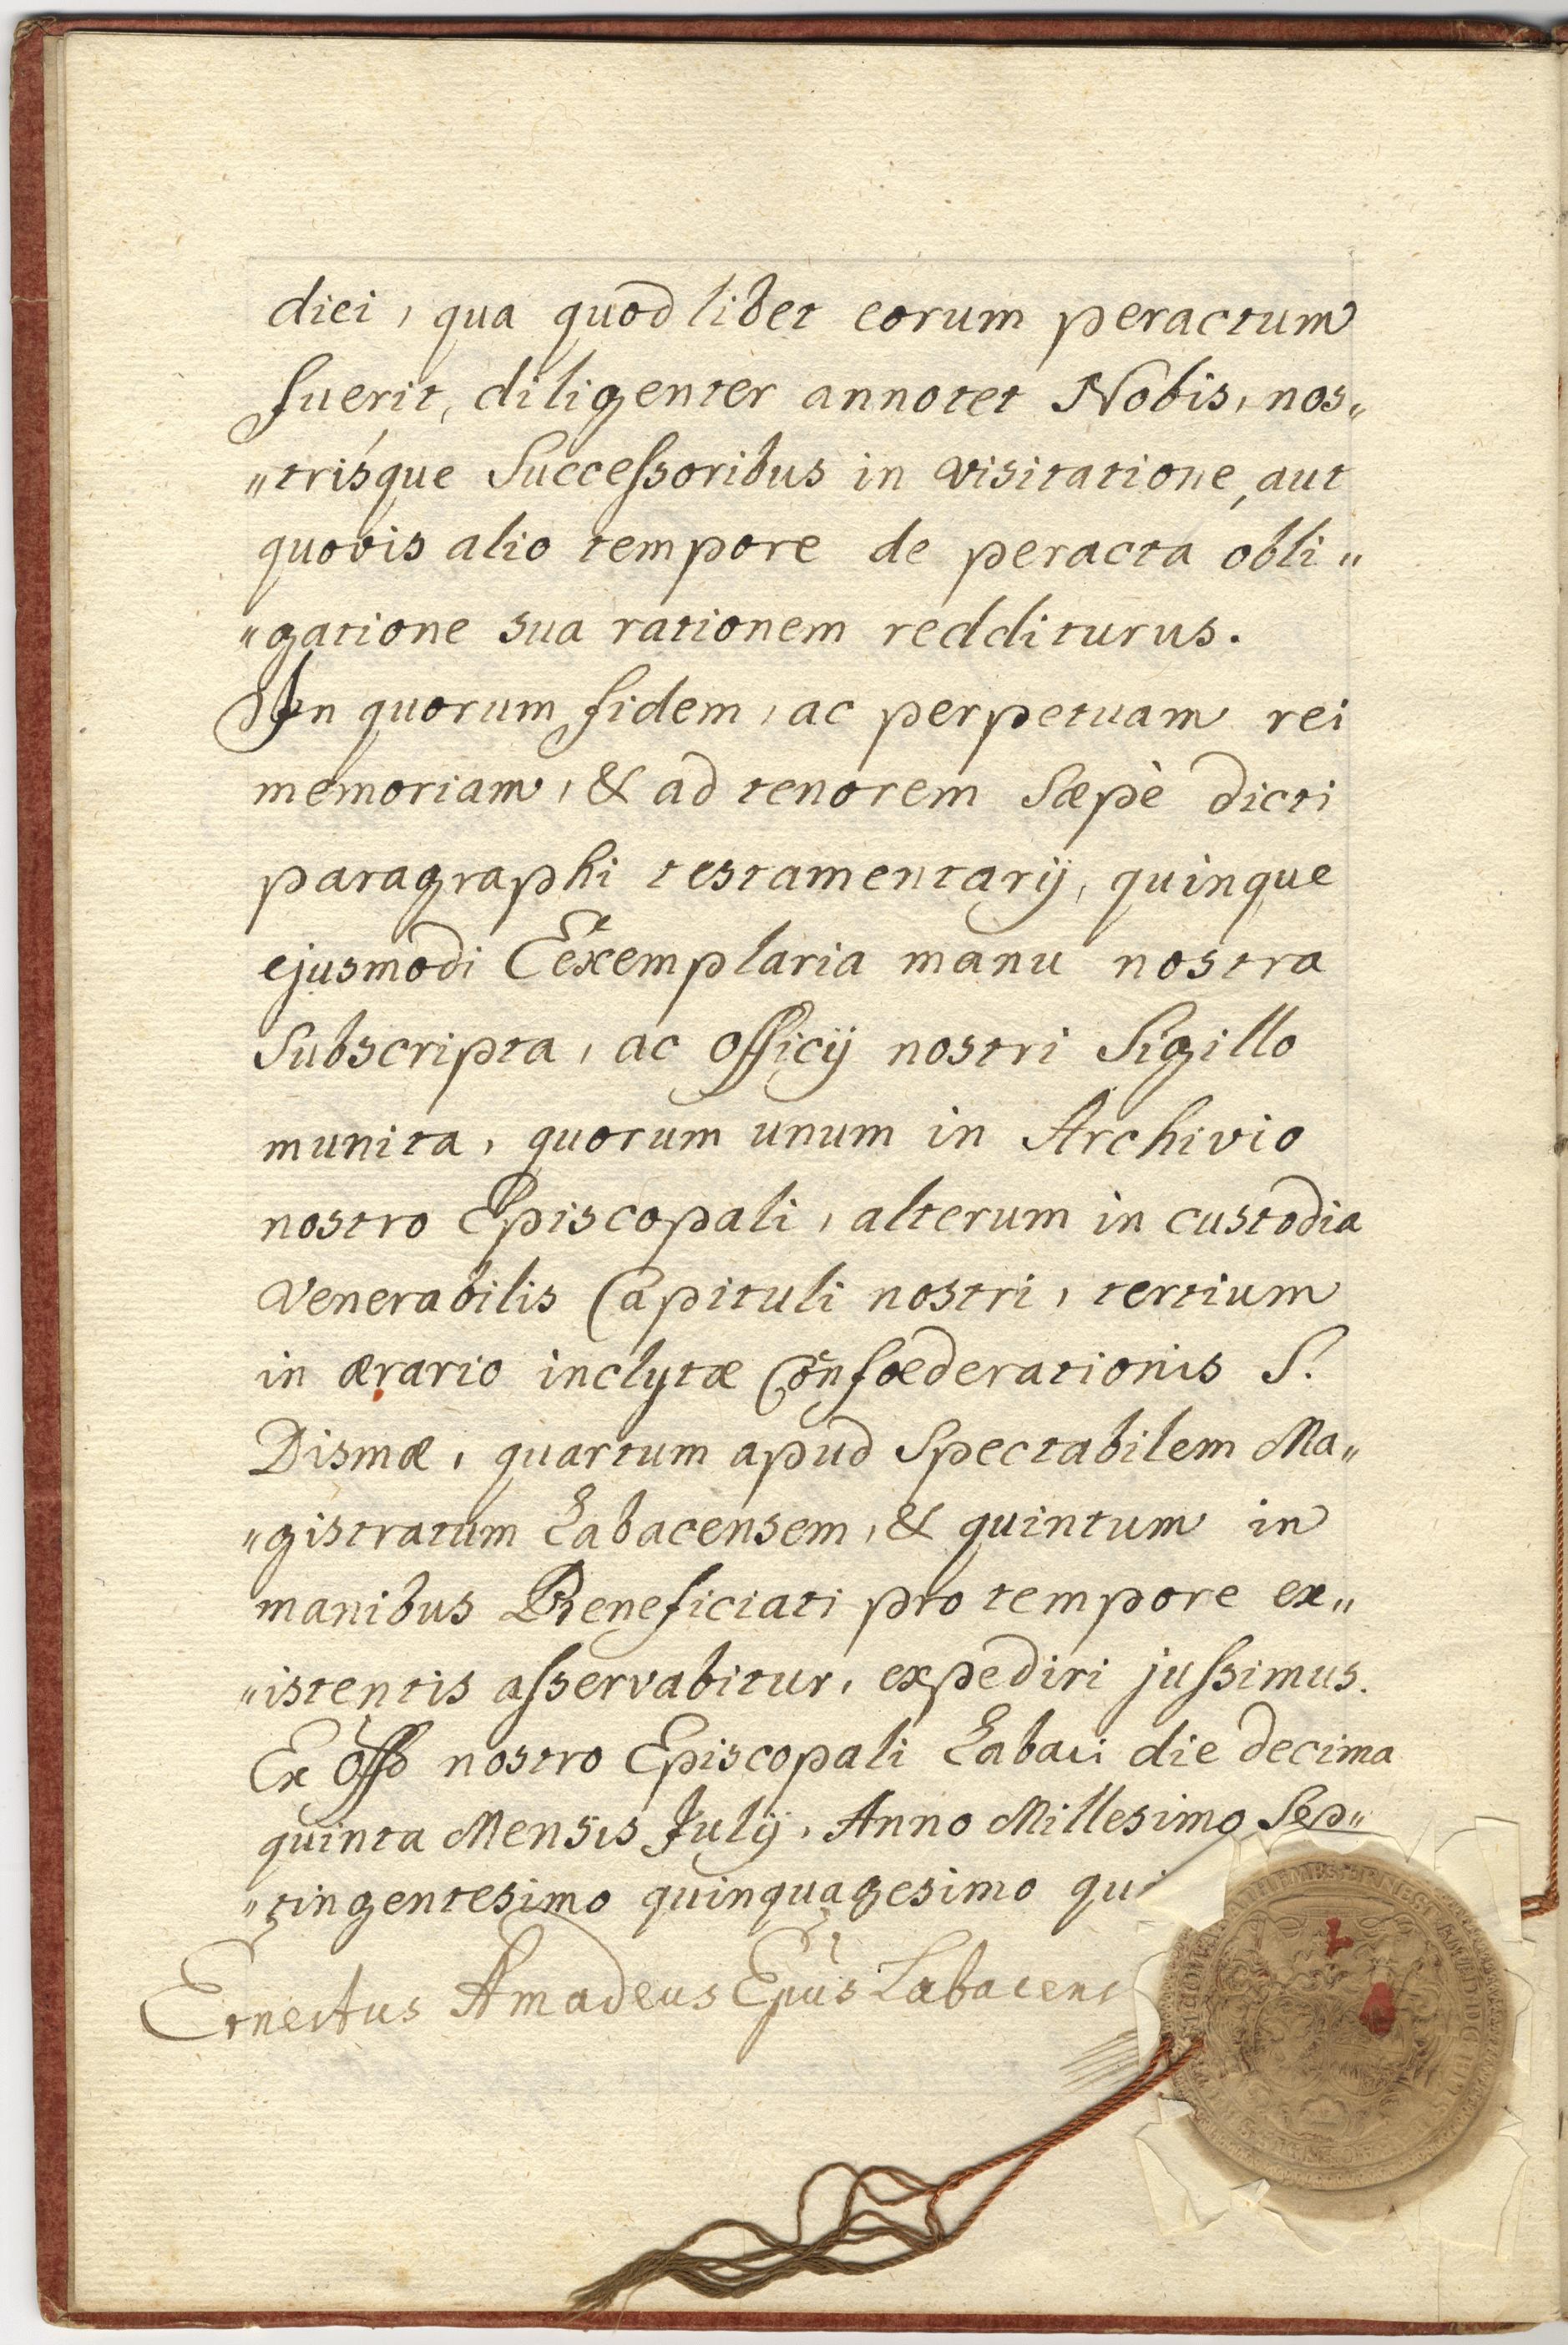 diei, qua quod libet eorum peractum
fuerit, diligenter annotet Nobis, nos„
„trisque Succeſsoribus in visitatione, aut
quovis alio tempore de peracta obli„
„gatione sua rationem redditurus.
In quorum fidem, ac perpetuam rei
memoriam, & ad tenorem Sæpè dicti
paragraphi testamentarij, quinque
ejusmodi Exemplaria manu nostra
Subscripta, ac officij nostri Sigillo
munita, quorum unum in Archivio
nostro Episcopali, alterum in custodia
Venerabilis Capituli nostri, tertium
in ærario inclytæ Confœderationis S.
Dismæ, quartum apud Spectabilem Ma„
„gistratum Labacensem, & quintum in
manibus Beneficiati pro tempore ex„
„istentis aſservabitur, expediri juſsimus.
Ex offo nostro Episcopali Labaci die decima
quinta Mensis Julij, Anno Millesimo Sep„
„tingentesimo quinquagesimo qui
Ernestus Amadeus Epus Labacens